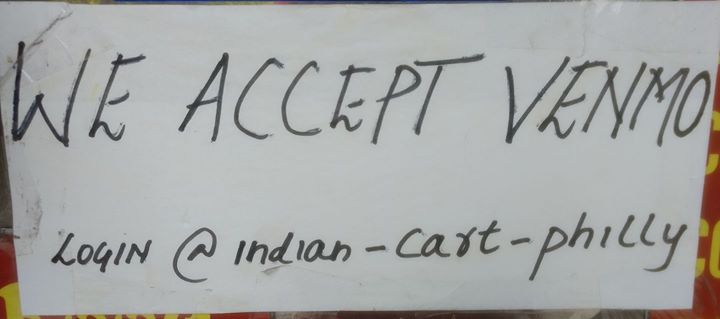 WE ACCEPT VENMO
LOGIN @ indian-cart-philly